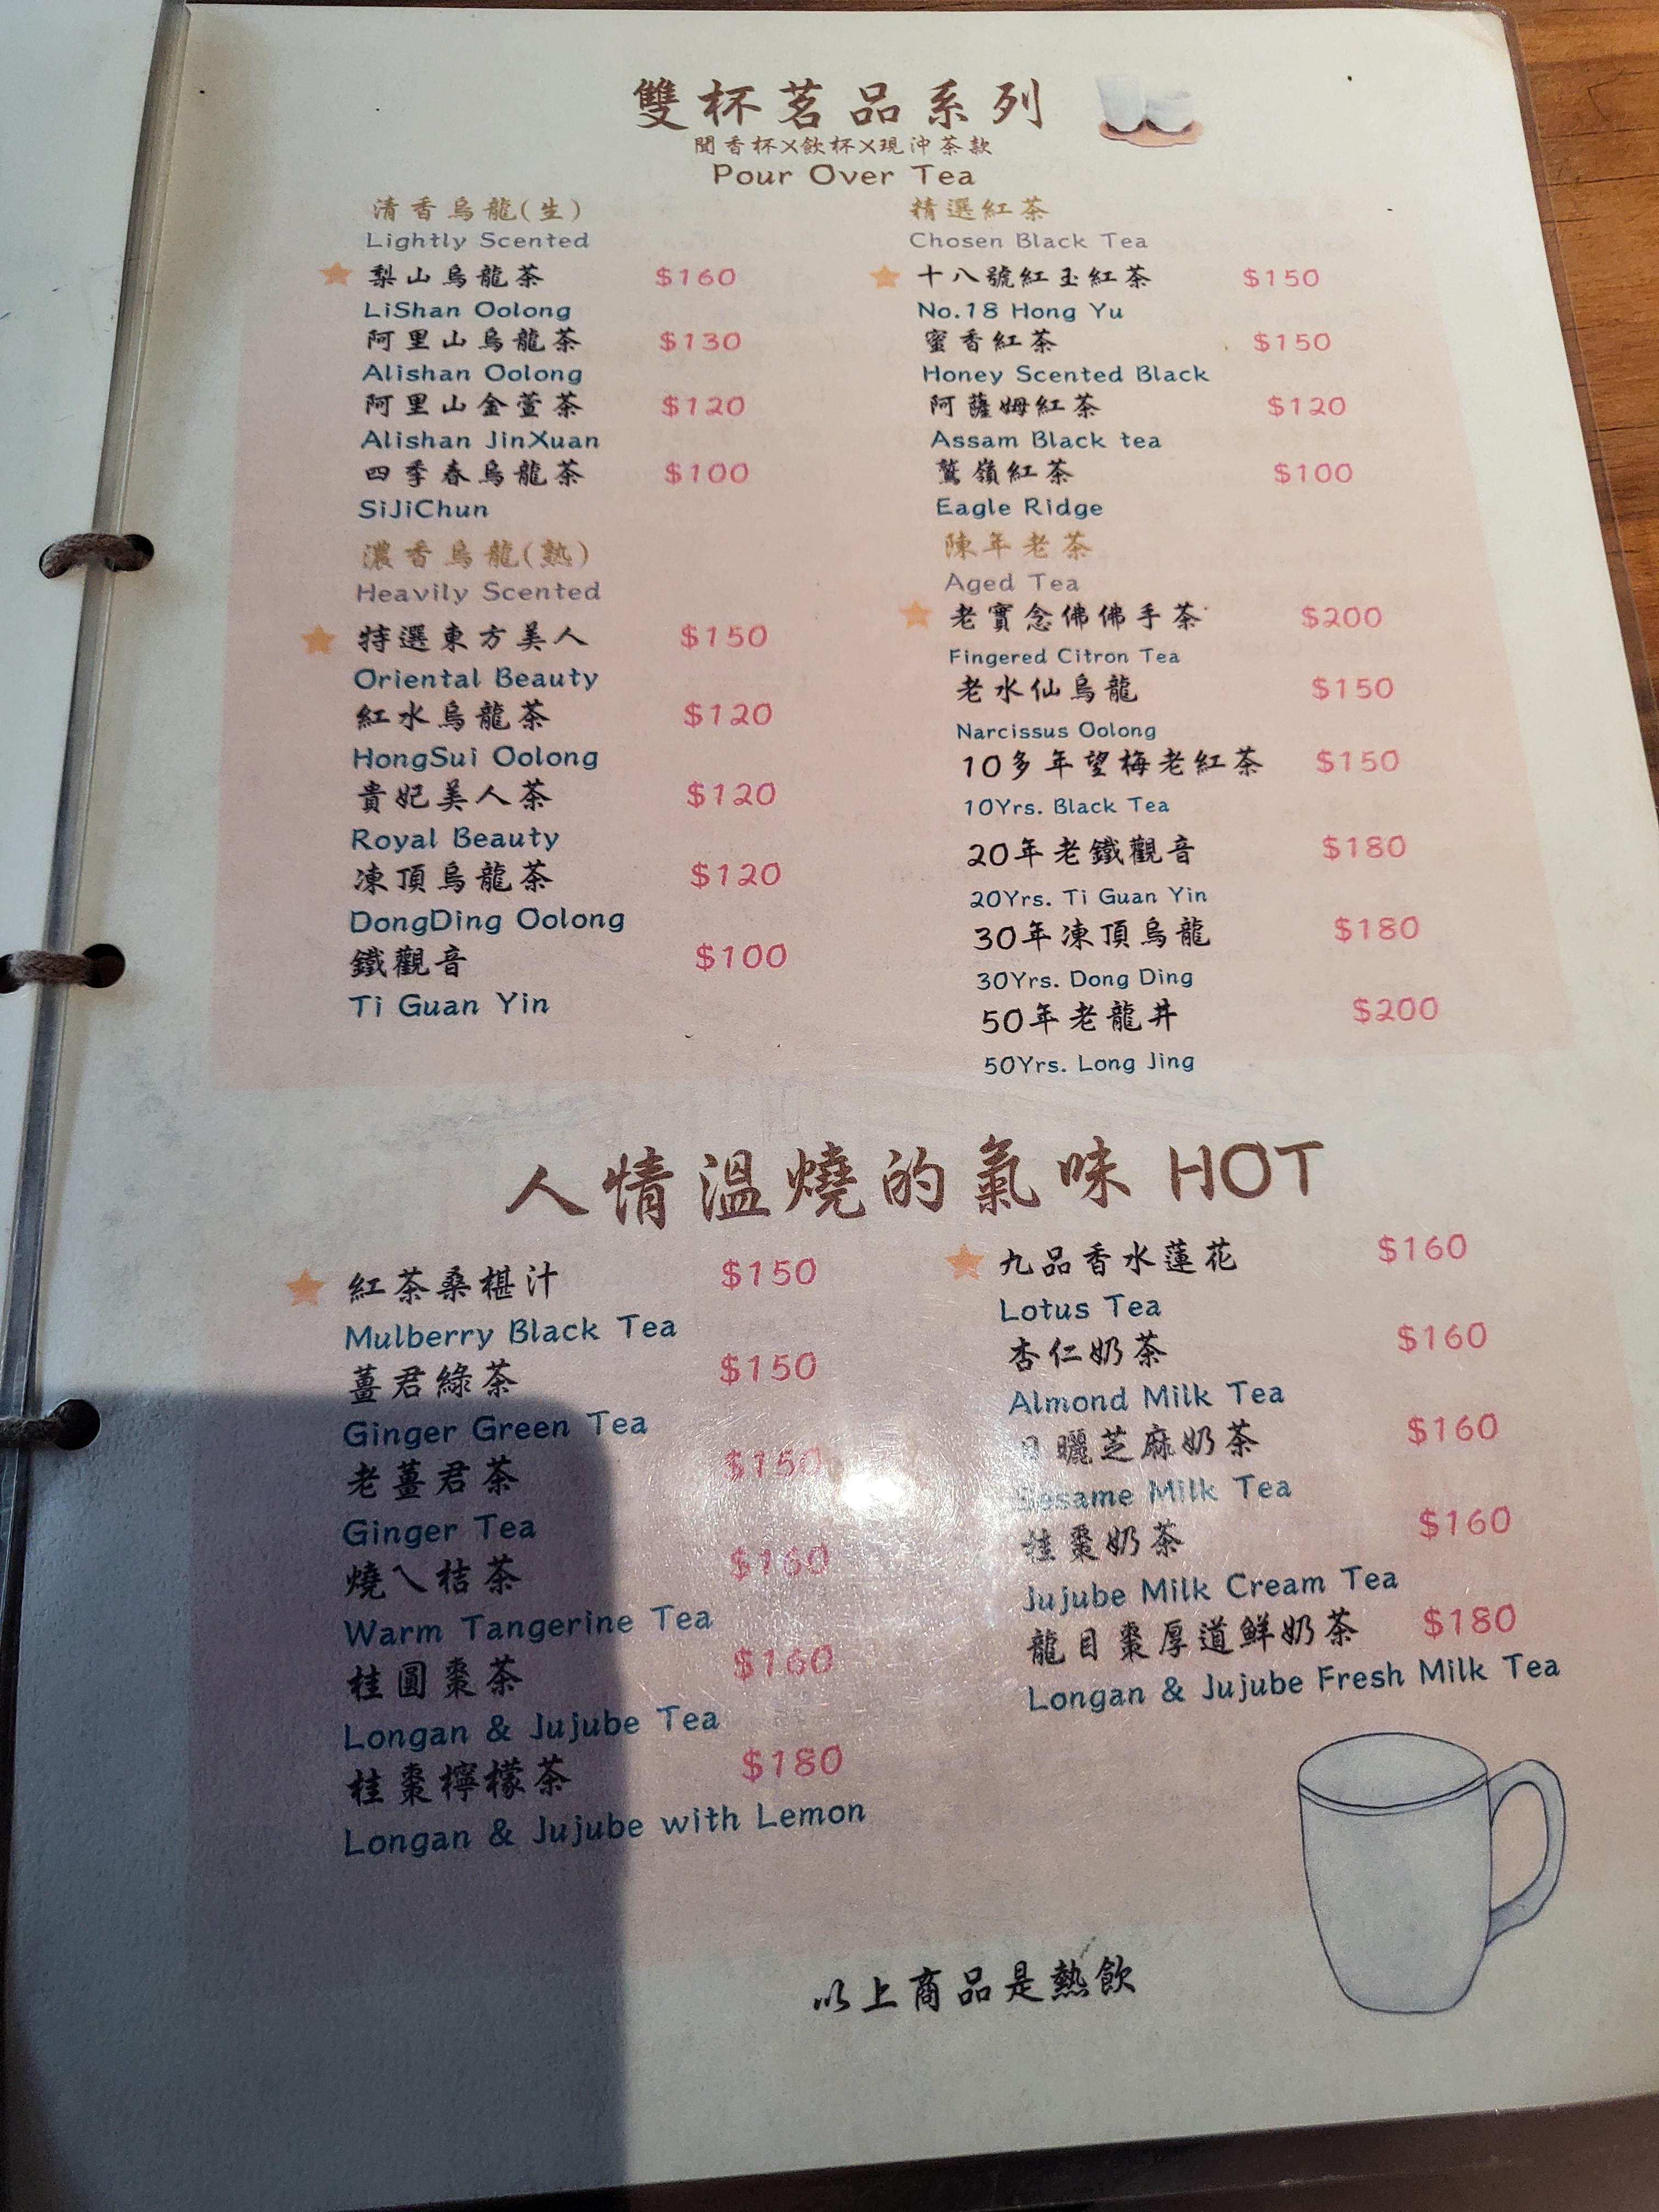 雙杯茗品系列
聞香杯X飲杯X現沖茶款
Pour Over Tea
清香烏龍(生)
Lightly Scented
梨山烏龍茶 $160
LiShan Oolong
阿里山烏龍茶 $130
Alishan Oolong
阿里山金萱茶 $120
Alishan JinXuan
四季春烏龍茶 $100
SiJiChun
濃香烏龍(熟)
Heavily Scented
特選東方美人 $150
Oriental Beauty
紅水烏龍茶 $120
HongSui Oolong
貴妃美人茶 $120
Royal Beauty
凍頂烏龍茶 $120
DongDing Oolong
鐵觀音 $100
Ti Guan Yin
精選紅茶
Chosen Black Tea
十八號紅玉紅茶 $150
No.18 Hong Yu
蜜香紅茶 $150
Honey Scented Black
阿薩姆紅茶 $120
Assam Black tea
鷲嶺紅茶 $100
Eagle Ridge
陳年老茶
Aged Tea
老實念佛佛手茶 $200
Fingered Citron Tea
老水仙烏龍 $150
Narcissus Oolong
10多年望梅老紅茶 $150
10Yrs. Black Tea
20年老鐵觀音 $180
20Yrs. Ti Guan Yin
30年凍頂烏龍 $180
30Yrs. Dong Ding
50年老龍井 $200
50Yrs. Long Jing
人情溫燒的氣味 HOT
紅茶桑椹汁 $150
Mulberry Black Tea
薑君綠茶 $150
Ginger Green Tea
老薑君茶 $150
Ginger Tea
燒ㄟ桔茶 $160
Warm Tangerine Tea
桂圓棗茶 $160
Longan & Jujube Tea
桂棗檸檬茶 $180
Longan & Jujube with Lemon
九品香水蓮花 $160
Lotus Tea
杏仁奶茶 $160
Almond Milk Tea
日曬芝麻奶茶 $160
Sesame Milk Tea
桂棗奶茶 $160
Jujube Milk Cream Tea
龍目棗厚道鮮奶茶 $180
Longan & Jujube Fresh Milk Tea
以上商品是熱飲